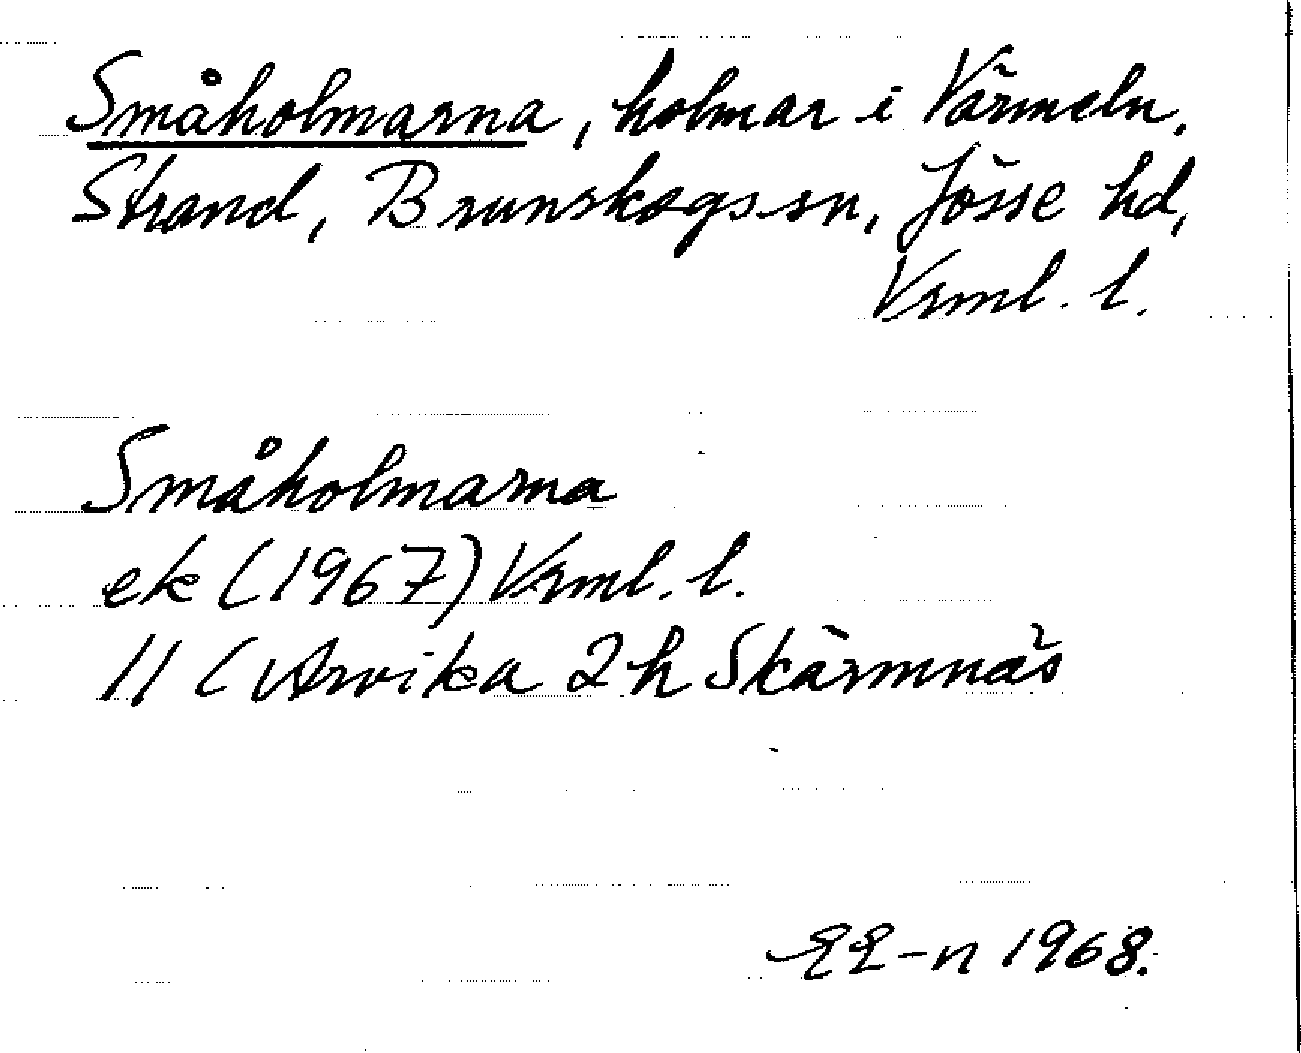 Småholmarna, holmar i Värmeln,
Strand, Brunskogs sn, Jösse hd,
Vrml. l.
Småholmarna
ek (1967) Vrml. l.
11 C Arvika 2 h Skärmnäs
EE-n 1968.